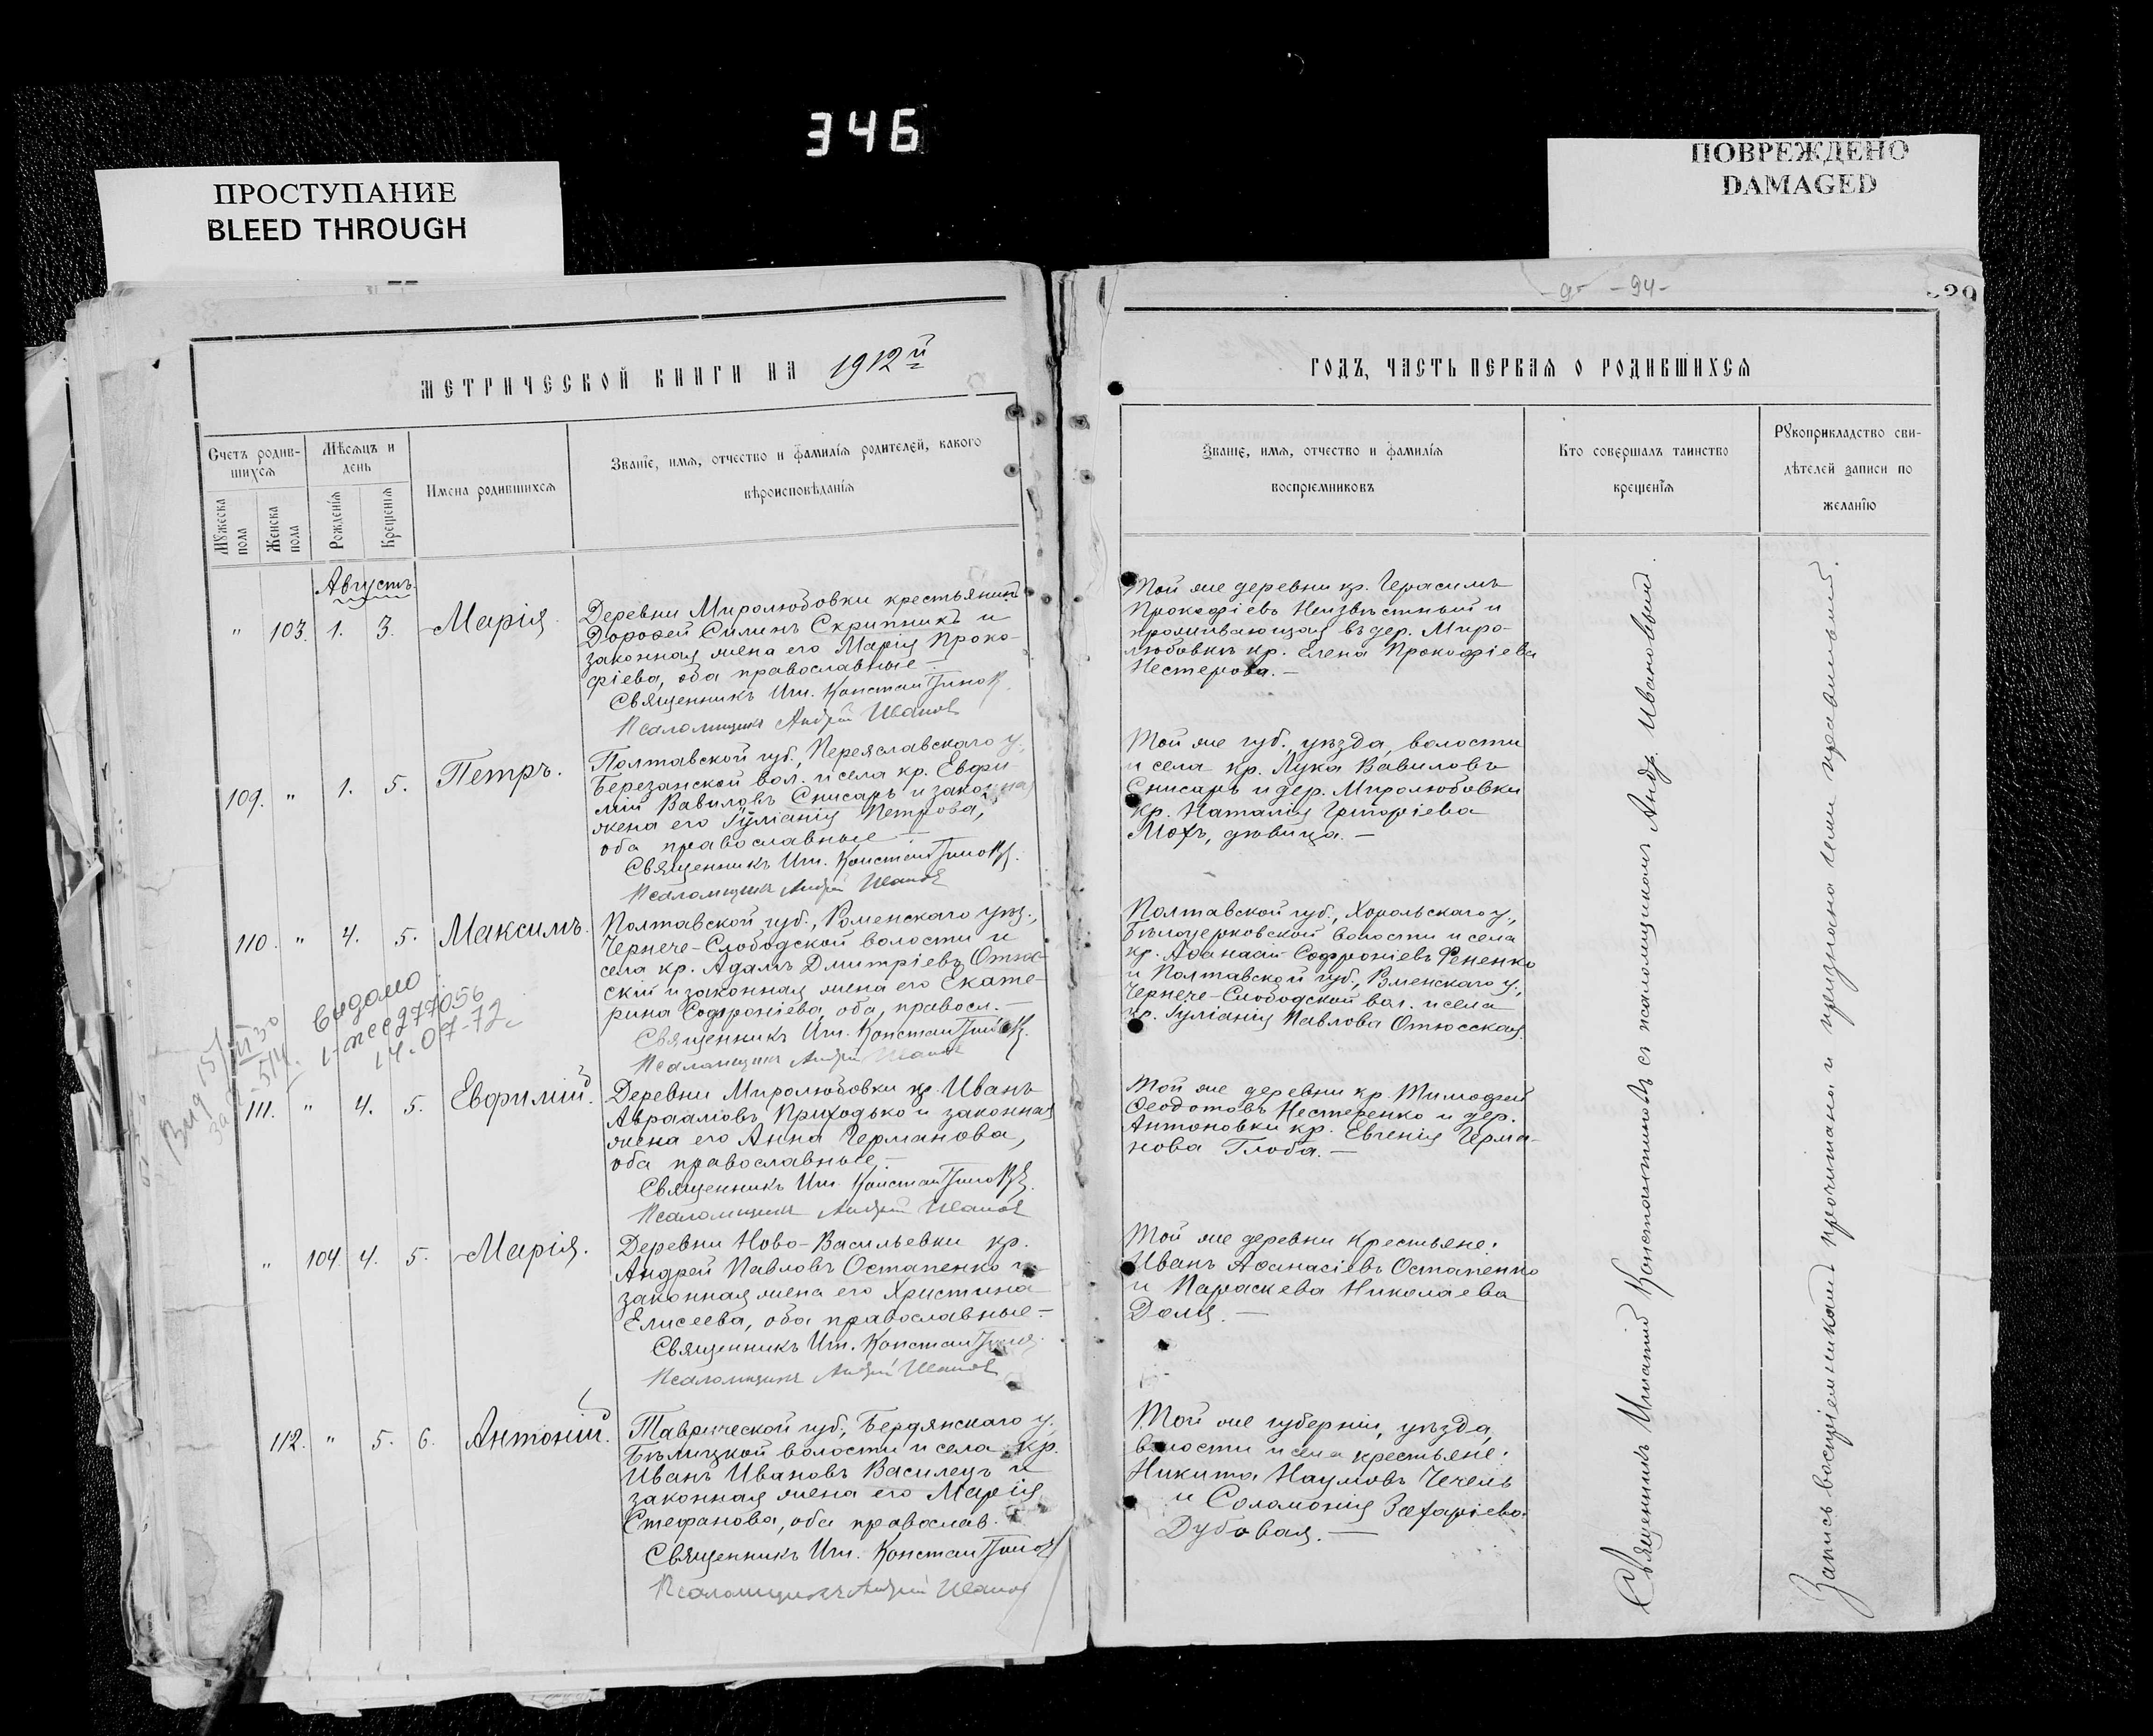 346
ПРОСТУПАНИЕ
BLEED THROUGH
ПОВРЕЖДЕНО
DAMAGED
МЕТРИЧЕСКОЙ КНИГИ НА 1912й
Счетъ родив-
шихся
Мѣсяцъ и
день
Имена родившихся
Званіе, имя, отчество и фамилія родителей, какого
вѣроисповѣданія
Мужеска
пола
Женска
пола
Рожденія
Крещенія
Августъ
" 103. 1. 3. Марія
Деревни Миролюбовки крестьянин
Дорофей Силинъ Скрипникъ и
законная жена его Марія Проко-
фіева, оба православные –
Священникъ Игн. Констан
Псаломщикъ Андрей Иванов
109. " 1. 5. Петръ.
Полтавской губ., Переяславскаго у.,
Березанской вол. и села кр. Евфи-
мій Вавиловъ Снисарь и законная
жена его Іуліанія Петрова,
оба православные –
Священникъ Игн. Констан
Псаломщикъ Андрей Иванов
110. " 4. 5. Максимъ.
Полтавской губ., Роменскаго уѣз.,
Чернече-Слободской волости и
села кр. Адамъ Дмитріевъ Отюс-
скій и законная жена его Екате-
рина Софроніева, оба, правосл. –
Священникъ Игн. Констан
Псаломщикъ Андрей Иванов
Видано
277056
14.07-72
111. " 4. 5. Евфимій.
Деревни Миролюбовки кр. Иванъ
Авраамовъ Приходько и законная
жена его Анна Германова,
оба православные, –
Священникъ Игн. Констан
Псаломщикъ Андрей Иванов
" 104. 4. 5. Марія.
Деревни Ново-Васильевки кр.
Андрей Павловъ Остапенко и
законная жена его Христина
Елисеева, оба православные –
Священникъ Игн. Констан
Псаломщикъ Андрей Иванов
112. " 5. 6. Антоній.
Таврической губ., Бердянскаго у.,
Бѣлицкой волости и села кр.
Иванъ Ивановъ Василецъ и
законная жена его Марія
Стефанова, оба православ.
Священникъ Игн. Констан
Псаломщикъ Андрей Иванов
-94-
ГОДЪ, ЧАСТЬ ПЕРВАЯ О РОДИВШИХСЯ
Званіе, имя, отчество и фамилія
воспріемниковъ
Кто совершалъ таинство
крещенія
Рукоприкладство сви-
дѣтелей записи по
желанію
Той же деревни кр. Герасимъ
Прокофіевъ Неизвѣстный и
проживающая въ дер. Миро-
любовкѣ кр. Елена Прокофіева
Нестерова. –
Той же губ., уѣзда, волости
и села кр. Лука Вавиловъ
Снисарь и дер. Миролюбовки
кр. Наталія Григоріева
Мохъ, дѣвица. –
Полтавской губ., Хорольскаго у.,
Бѣлоцерковской волости и села
кр. Аѳанасій Софроніевъ Фененко
и Полтавской губ., Роменскаго у.,
Чернече-Слободской вол. и села
кр. Іуліанія Павлова Отюсская.
Той же деревни кр. Тимофей
Ѳеодотовъ Нестеренко и дер.
Антоновки кр. Евгенія Герма-
нова Глоба. –
Той же деревни крестьяне:
Иванъ Аѳанасіевъ Остапенко
и Параскева Николаева
Доля. –
Той же губерніи, уѣзда,
волости и села крестьяне:
Никита Наумовъ Чечель
и Соломонія Захаріева
Дубовая. –
Священникъ Игнатій Константиновъ съ псаломщикомъ Андр. Ивановымъ.
Запись воспріемниками прочитана и признана ими правильной.